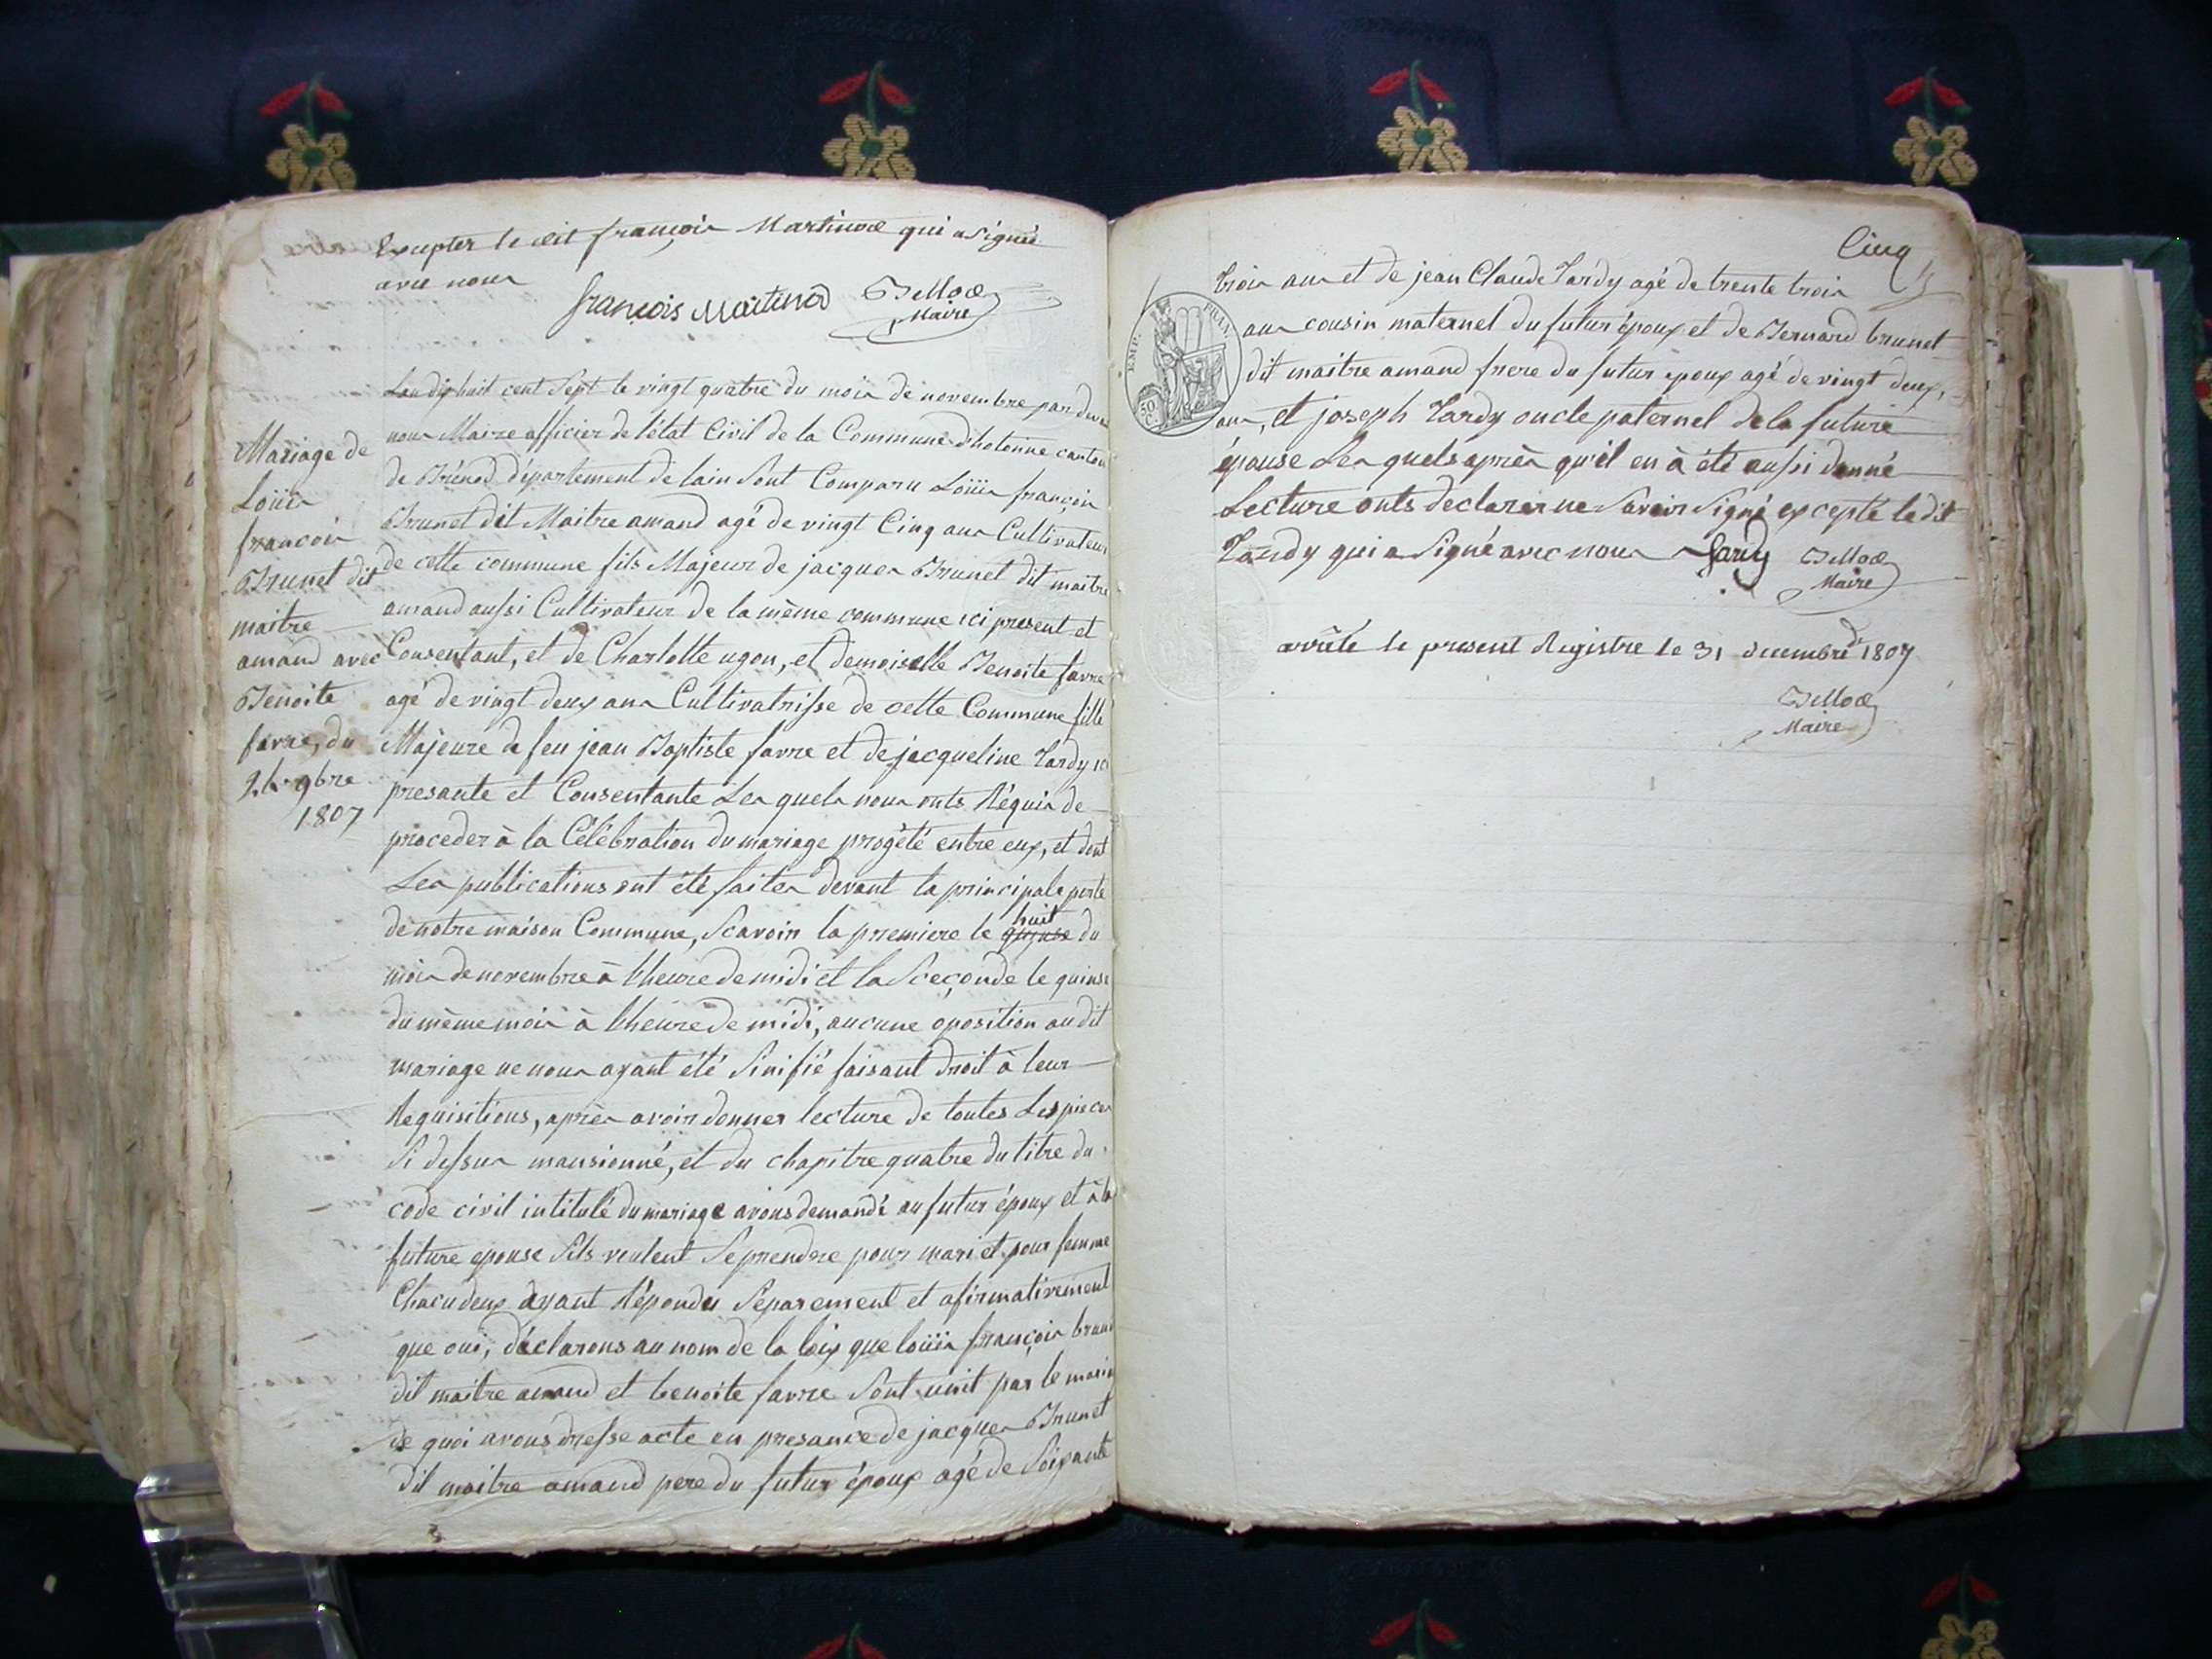 Excepter le dit françois Martinod qui a signé
avec nous
françois Martinod
Bellod
Maire
Mariage de
Loüis
françois
Brunet dit
maitre
amand avec
Benoite
favre, du
24 9bre
1807
Lan dix huit cent Sept le vingt quatre du mois de novembre par devant
nous Maire officier de l'état Civil de la Commune d'hotonne canton
de Brénod département de lain Sont Comparu Loüis françois
Brunet dit Maitre amand agé de vingt Cinq ans Cultivateur
de cette commune fils Majeur de jacques Brunet dit maitre
amand aussi Cultivateur de la même commune ici present et
Consentant, et de Charlotte ugon, et demoiselle Benoite favre
agé de vingt deux ans Cultivatrisse de cette Commune fille
Majeure de feu jean Baptiste favre et de jacqueline Tardy ici
presante et Consentante Les quels nous onts Réquis de
proceder à la Célébration du mariage progété entre eux, et dont
Les publications ont été faites devant la principale porte
de notre maison Commune, Scavoir la premiere le quinse huit du
mois de novembre à l'heure de midi et la Sceçonde le quinse
du même mois à l'heure de midi, aucune oposition audit
mariage ne nous ayant été Sinifié faisant droit à leur
Requisitions, après avoir donner lecture de toutes Les pieces
Si dessus mansionné, et du chapitre quatre du titre du
code civil intitulé du mariage avons demandé au futur époux et à la
future epouse Sils veulent Se prendre pour mari et pour femme
Chacudeux ayant Répondu Séparement et afirmativement
que oui, déclarons au nom de la loix que loüis françois brunet
dit maitre amand et benoite favre Sont unit par le mariage
de quoi avons dresse acte en presance de jacques Brunet
dit maitre amand pere du futur époux agé de Soixante
Cinq
trois ans et de jean Claude Tardy agé de trente trois
ans cousin maternel du futur époux et de Bernard brunet
dit maitre amand frere du futur epoux agé de vingt deux,
ans, et joseph Tardy oncle paternel de la future
épouse Les quels après qu'il en à été aussi donné
Lecture onts declarer ne Savoir Signé excepté le dit
Tardy qui a Signé avec nous
tardy
Bellod
Maire
EMP. FRAN.
50 C.
arrêté le present Registre le 31 decembre 1807
Bellod
Maire